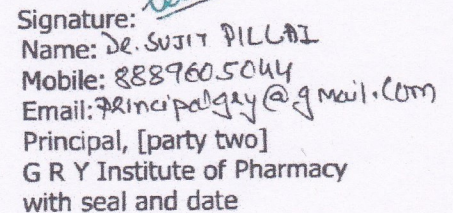 Signature:
Name: Dr. SUJIT PILLAI
Mobile: 8889605044
Email: principalgry@gmail.com
Principal, [party two]
G R Y Institute of Pharmacy
with seal and date